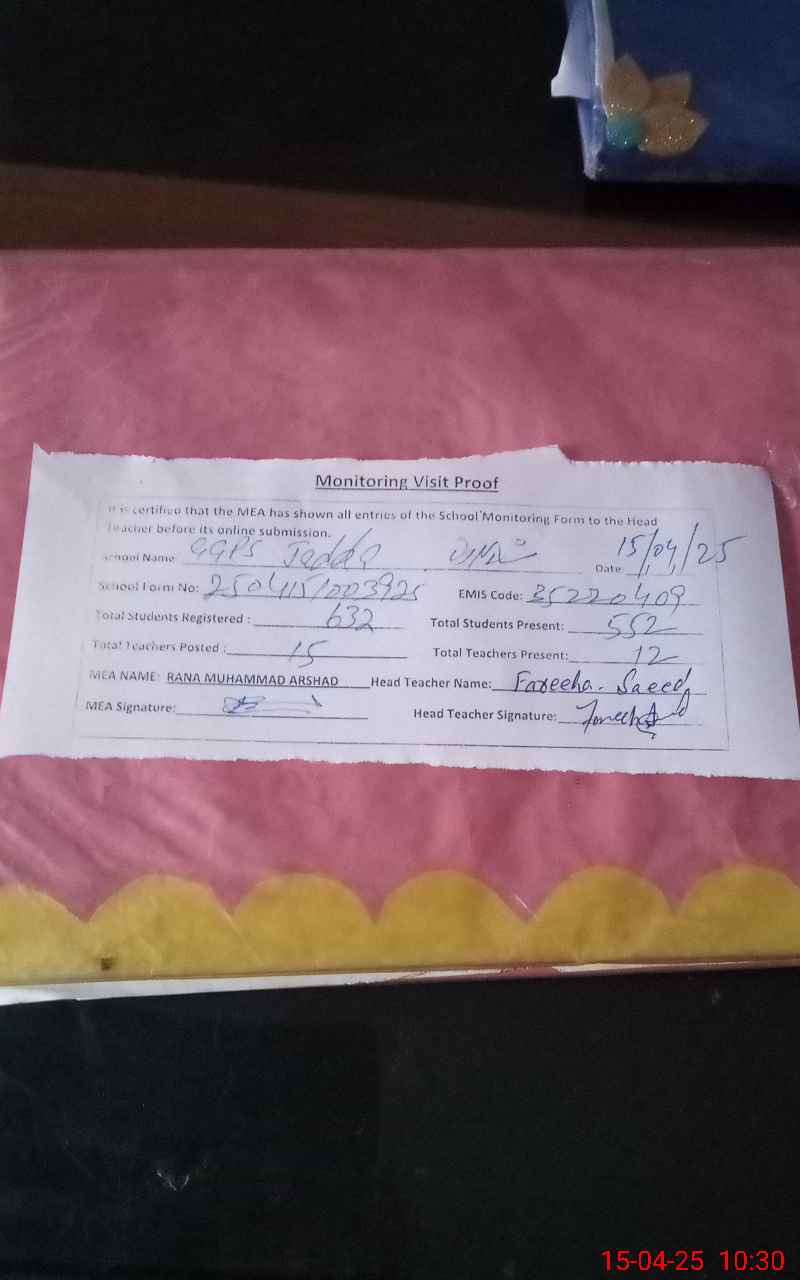 Monitoring Visit Proof
It is certified that the MEA has shown all entries of the School Monitoring Form to the Head
Teacher before its online submission.
School Name: GGPS Jedda Date 15/04/25
School Form No: 2504151003925 EMIS Code: 35220409
Total Students Registered : 632 Total Students Present: 552
Total Teachers Posted : 15 Total Teachers Present: 12
MEA NAME: RANA MUHAMMAD ARSHAD Head Teacher Name: Fareeha. Saeed
MEA Signature: Head Teacher Signature:
15-04-25 10:30